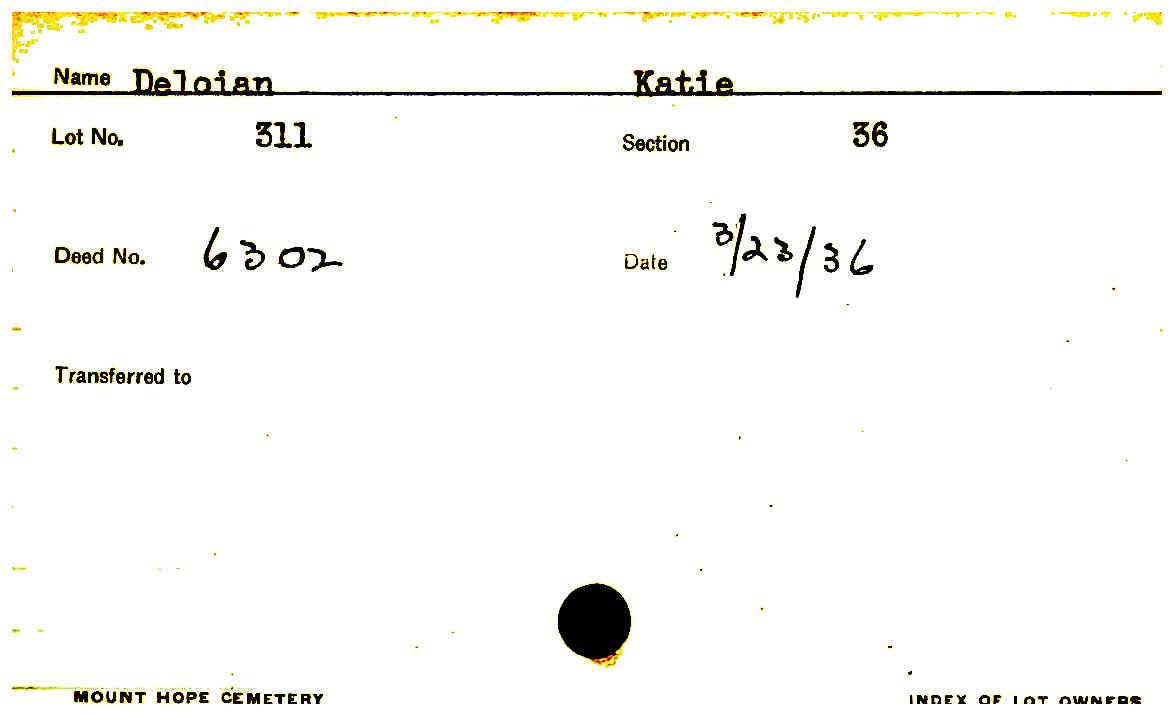 Name Deloian Katie
Lot No. 311 Section 36
Deed No. 6302 Date 3/23/36
Transferred to
MOUNT HOPE CEMETERY INDEX OF LOT OWNERS